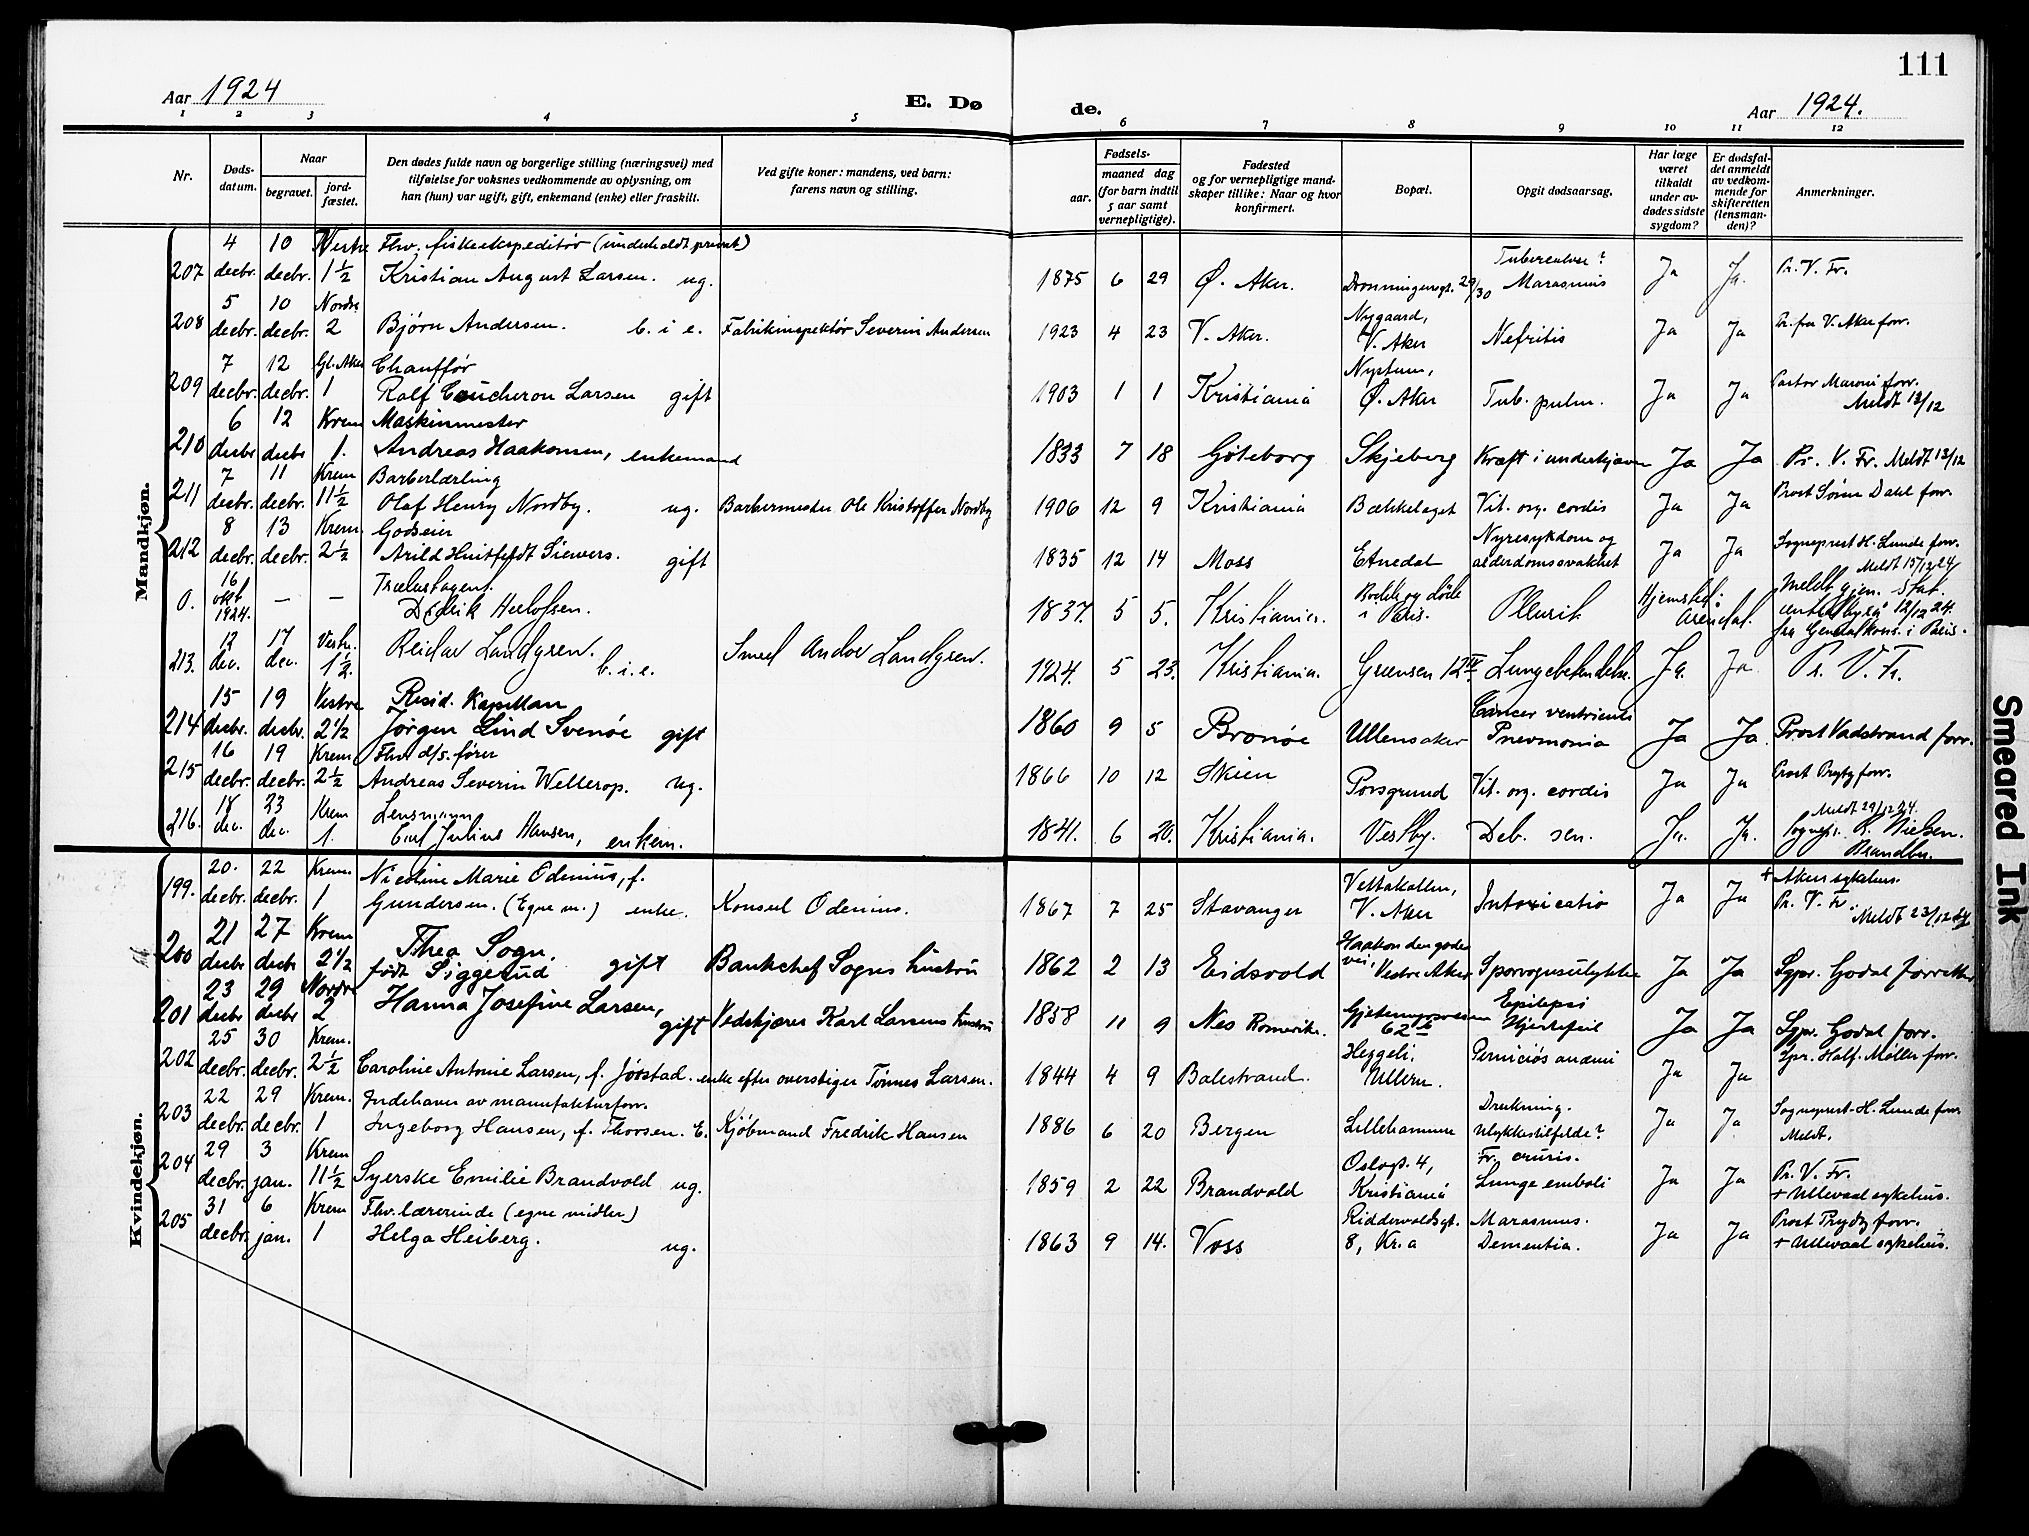 111
Aar 1924
E. Dø
de.
Aar 1924.
1 2 3 4 5 6 7 8 9 10 11 12
Nr.
Døds-
datum.
Naar
begravet.
jord-
fæstet.
Den dødes fulde navn og borgerlige stilling (næringsvei) med
tilføielse for voksnes vedkommende av oplysning, om
han (hun) var ugift, gift, enkemand (enke) eller fraskilt.
Ved gifte koner: mandens, ved barn:
farens navn og stilling.
Fødsels-
aar.
maaned dag
(for barn indtil
5 aar samt
vernepligtige).
Fødested
og for vernepligtige mand-
skaper tillike: Naar og hvor
konfirmert.
Bopæl.
Opgit dødsaarsag.
Har læge
været
tilkaldt
under av-
dødes sidste
sygdom?
Er dødsfal-
det anmeldt
av vedkom-
mende for
skifteretten
(lensman-
den)?
Anmerkninger.
Mandkjøn.
4 10 Vestre Fhv. fiskeekspeditør (underholdt privat) Tuberculose?
207 decbr. decbr. 1½ Kristian August Larsen. ug. 1875 6 29 Ø. Aker. Dronningensgt. 29/30 Marasmus Ja Ja. Pr. V. Fr.
5 10 Nordre Nygaard,
208 decbr. decbr. 2 Bjørn Andersen. b. i e. Fabrikinspektør Severin Andersen 1923 4 23 V. Aker. V. Aker Nefritis Ja Ja Pr. fra V. Aker forr.
7 12 Gl. Aker Chauffør
209 decbr. decbr. 1 Rolf Coucheron Larsen gift 1903 1 1 Kristiania Ø. Aker Tub. pulm. Ja Ja Pastor Maroni forr.
Meldt 13/12
6 12 Krem Maskinmester
210 decbr decbr 1. Andreas Haakonsen, enkemand 1833 7 18 Göteborg Skjeberg Kræft i underkjæven Ja Ja Pr. V. Fr. Meldt 13/12
7 11 Krem Barberlærling
211 decbr. decbr. 11½ Olaf Henry Nordby. ug. Barbermester Ole Kristoffer Nordby 1906 12 9 Kristiania Bækkelaget Vit. org. cordis Ja Ja Prost Sören Dahl forr.
8 13 Krem Godseier Nyresykdom og
212 decbr. decbr. 2½ Arild Huitfeldt Siewers. gift 1835 12 14 Moss Etnedal alderdomssvakhet Ja Ja Sogneprest H. Lunde forr.
Meldt 15/12 24
16 Trælastagent.
0. okt 1924. — — Didrik Heelofsen. 1837. 5 5. Kristiania. Bodde og døde i Paris. Pleurit Hjemsted: Arendal. Meldt gjen. Stat.
centralbyrå 12/12 24.
fra Gen. i Paris.
12 17 Vestre.
213. dec. dec. 1½. Reidar Landgren. b. i. e. Smed Andor Landgren. 1924. 5 23. Kristiania. Grensen 12 Lungebetendelse. Ja. Ja. Pr. V. Fr.
15 19 Vestre Resid. Kapellan Cancer ventriculi
214 decbr. decbr. 2½ Jørgen Lind Svenøe gift 1860 9 5 Brønøe Ullensaker Pnevmonia Ja Ja. Prost Vadstrand forr.
16 19 Krem Fhv. d/s. fører
215 decbr. decbr. 2½ Andreas Severin Wellerop. ug. 1866 10 12 Skien Porsgrund Vit. org. cordis Ja Ja Prost Prytz forr.
18 23 Krem Lensmann Meldt 29/12 24.
216. dec. dec. 1. Carl Julius Hansen, enkem. 1841. 6 20. Kristiania. Vestby. Deb. sen. Ja. Ja. Sognepr. R. Nielsen.
Brandbu.
Kvindekjøn.
20. 22 Krem. Nicoline Marie Odenius, f. Vettakollen, + Aker sykehus.
199. decbr. decbr. 1 Gundersen. (Egne m.) enke. Konsul Odenius. 1867 7 25 Stavanger V. Aker Intoxicatio Ja Ja Pr. V. Fr.
Meldt 23/12 24
21 27 Krem Thea Sogn. Haakon den godes
200 decbr decbr 2½ født Siggerud gift Bankchef Sogns hustru 1862 2 13 Eidsvold vei, Vestre Aker Sporvognsulykke Ja Ja Spr. Godal forrettet
23 29 Nordre Epilepsi
201 decbr decbr 2 Hanna Josefine Larsen, gift Vedskjærer Karl Larsens hustru 1858 11 9 Nes Romerike. Gjetemyrsveien 62 Hjertefeil Ja Ja Spr. Godal forr.
25 30 Krem. Heggeli.
202 decbr. decbr. 2½ Caroline Antonie Larsen, f. Jørstad. enke efter overstiger Tönnes Larsen. 1844 4 9 Balestrand. Ullern. Perniciøs anæmi Ja Ja Spr. Half. Møller forr.
22 29 Krem. Indehaver av manufakturforr. Drukning.
203 decbr. decbr. 1 Ingeborg Hansen, f. Thorsen. E. Kjøbmand Fredrik Hansen 1886 6 20 Bergen Lillehammer Ulykkestilfelde? Ja Ja Sogneprest H. Lunde forr.
Meldt.
29 3 Krem Oslogt. 4, Fr. cruris.
204 decbr. jan. 11½ Syerske Emilie Brandvold ug. 1859 2 22 Brandvold Kristiania Lunge emboli Ja Ja Pr. V. Fr.
+ Ullevaal sykehus.
31 6 Krem Fhv. lærerinde (egne midler) Riddervoldsgt. Marasmus.
205 decbr. jan. 1 Helga Heiberg. ug. 1863 9 14. Voss 8, Kr.a Dementia. Ja Ja Prost Prydz forr.
+ Ullevaal sykehus.
Smeared Ink